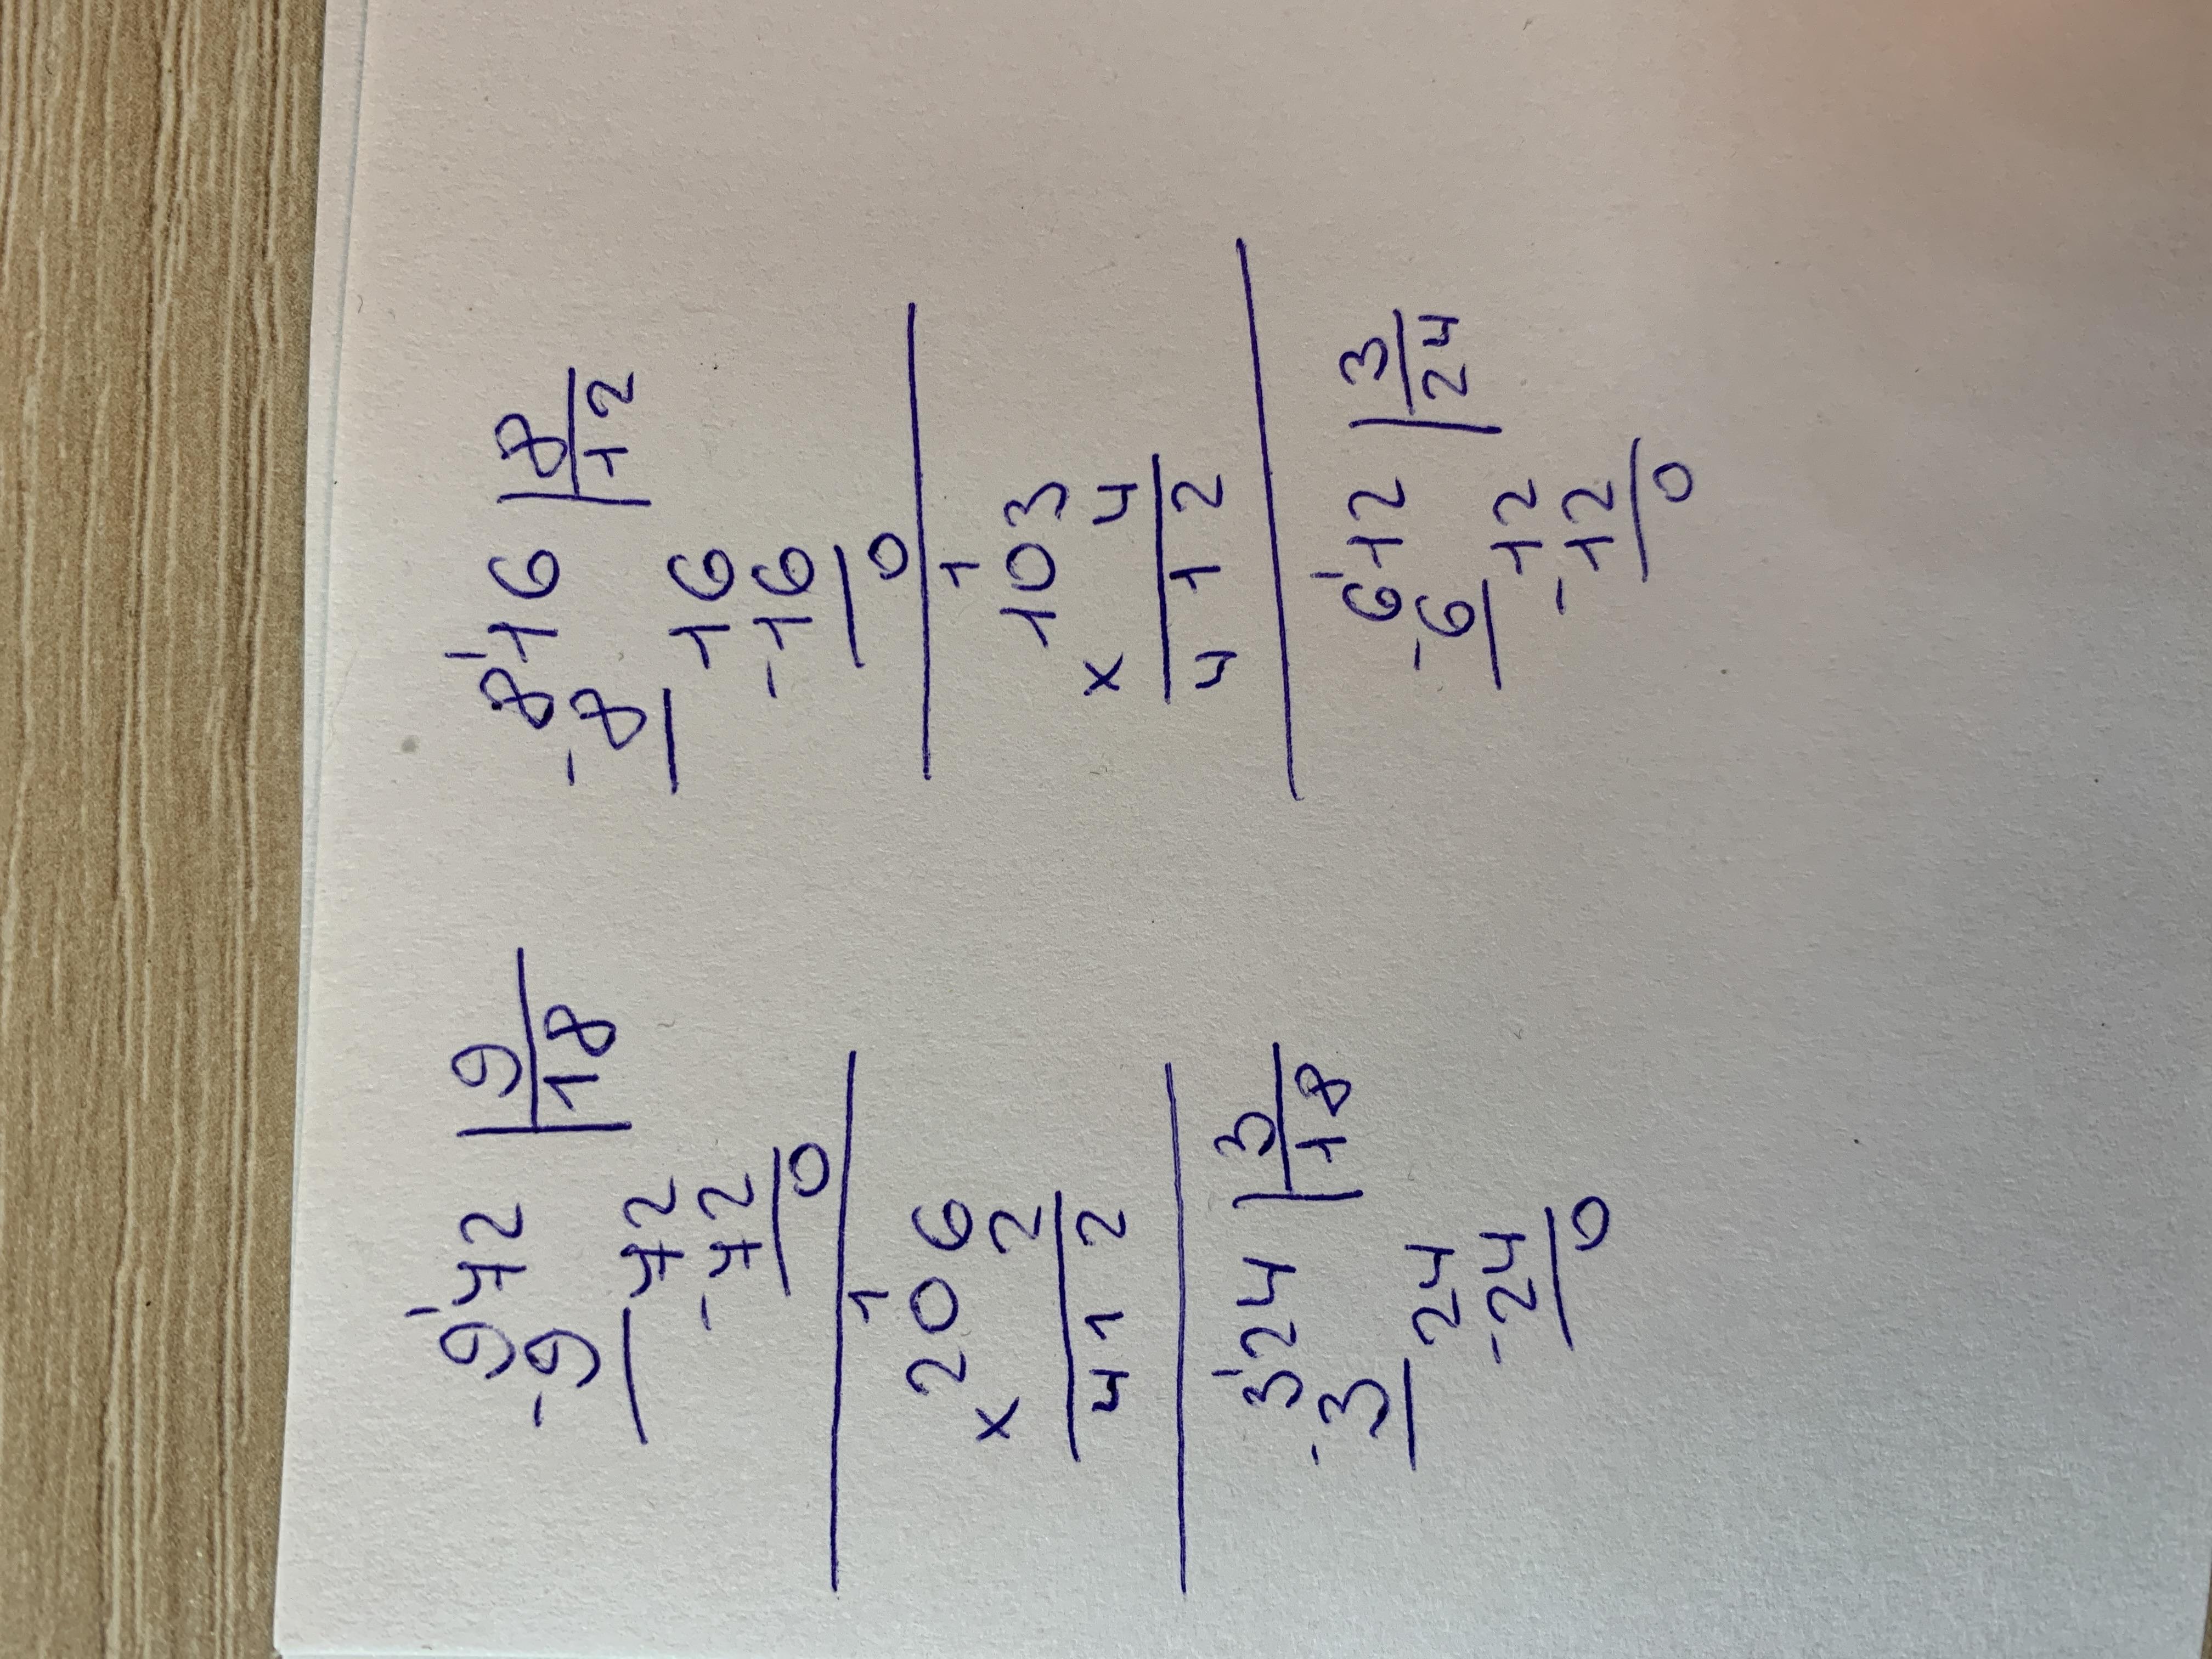 9'72 | 9
-9 18
72
-72
0
1
206
x 2
412
3'24 | 3
-3 18
24
-24
0
8'16 | 8
-8 12
16
-16
0
1
103
x 4
412
6'12 | 3
-6 24
12
-12
0